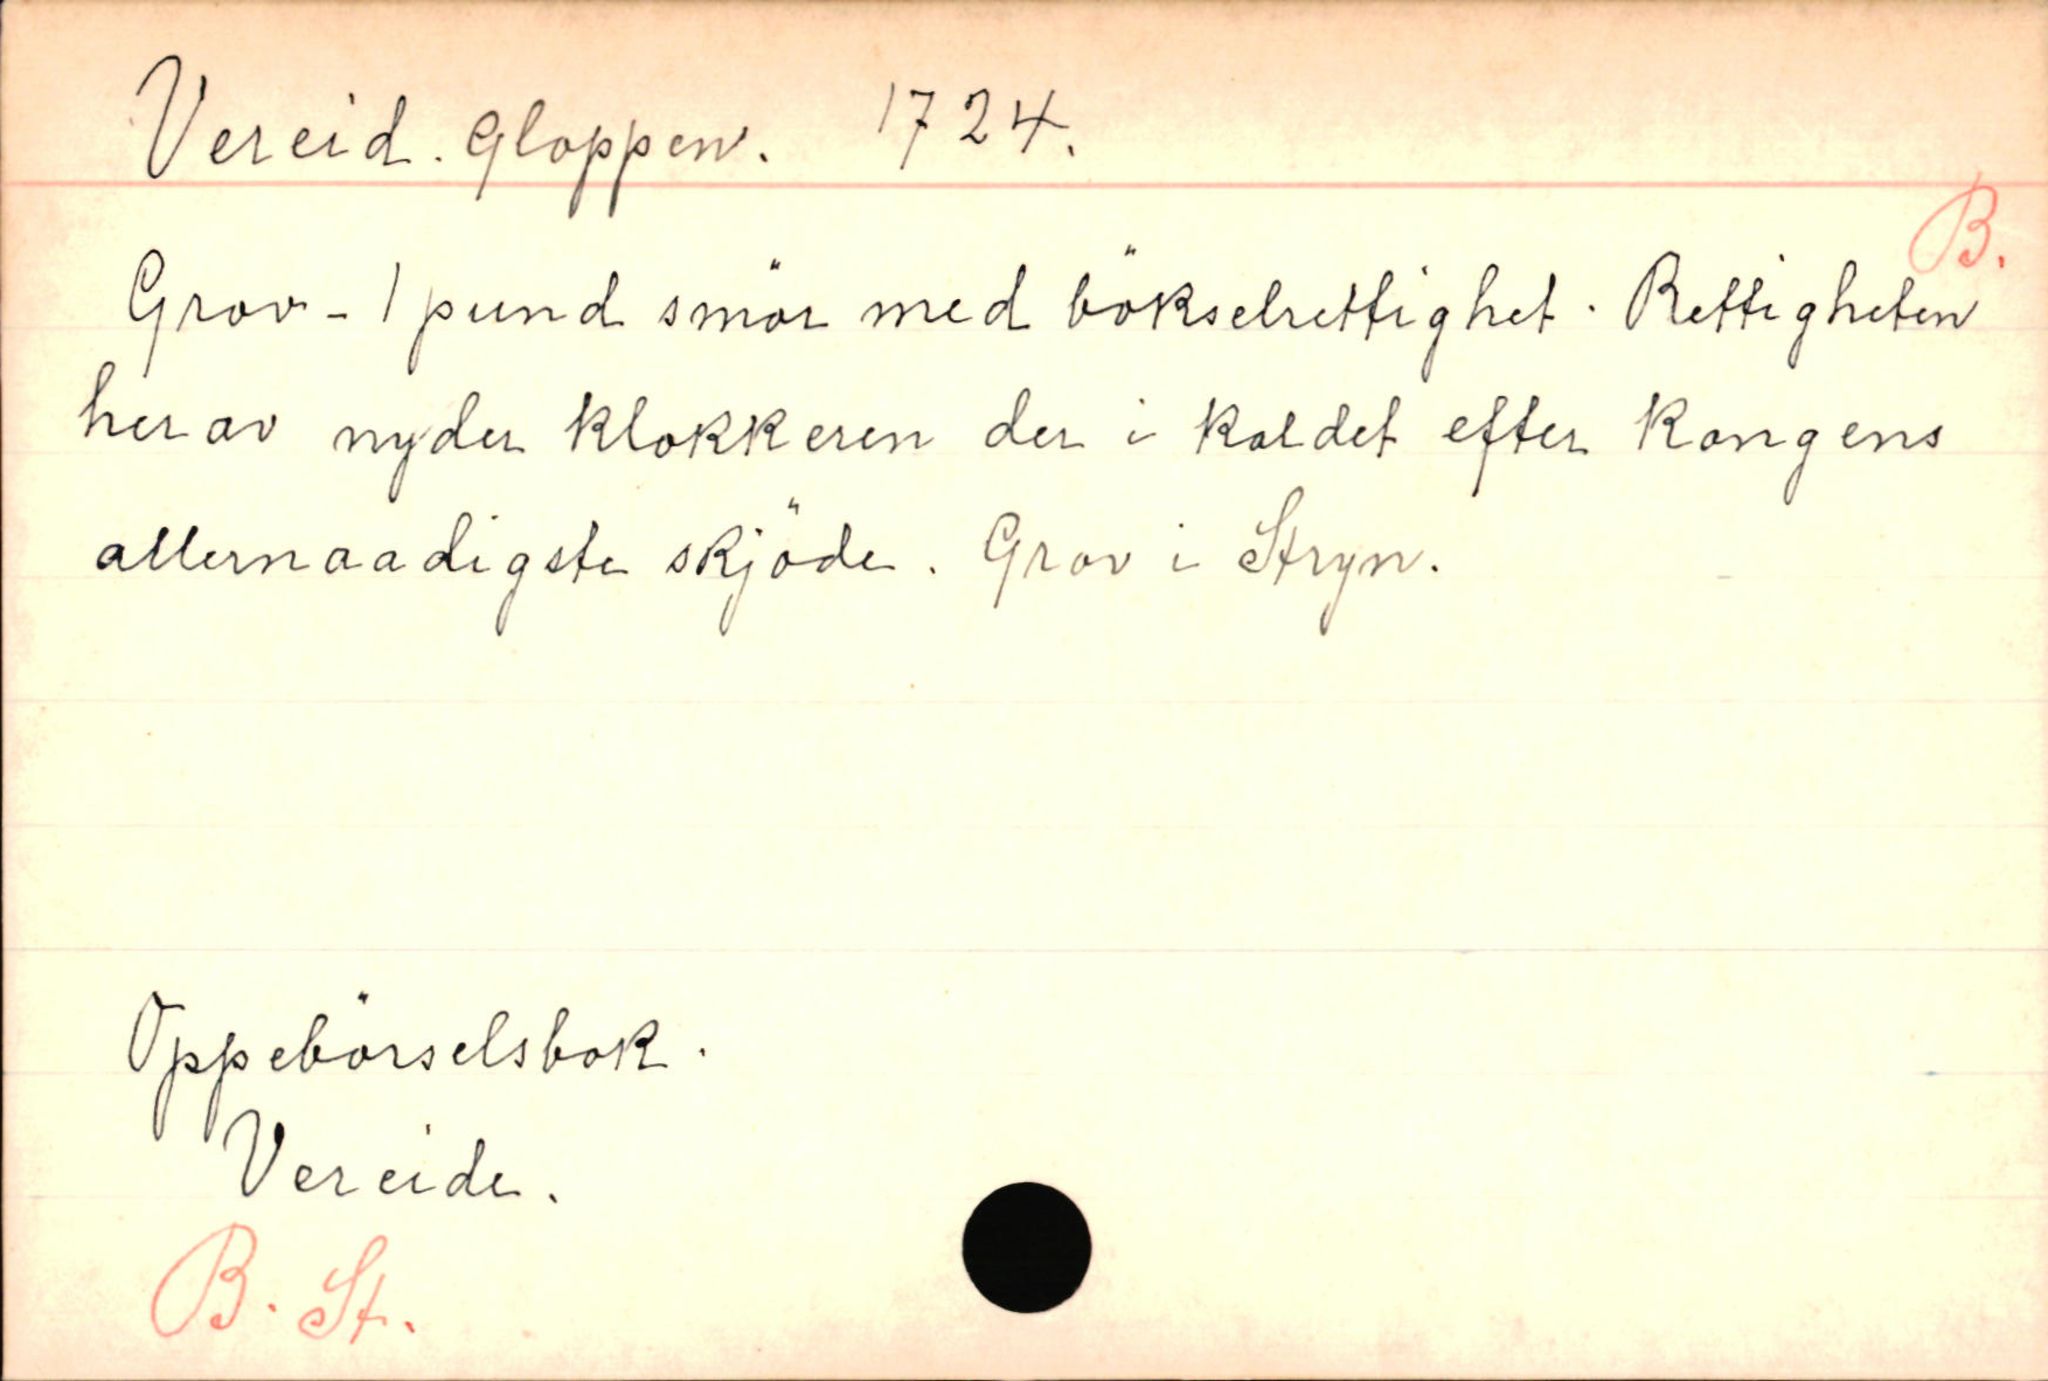 Vereid. Gloppen. 1724.
B.
Grov - 1 pund smör med bökselrettighet. Rettigheten
herav nyder klokkeren der i kaldet efter Kongens
allernaadigste skjöde. Grov i Stryn.
Oppebörselsbok.
Vereide.
B. St.